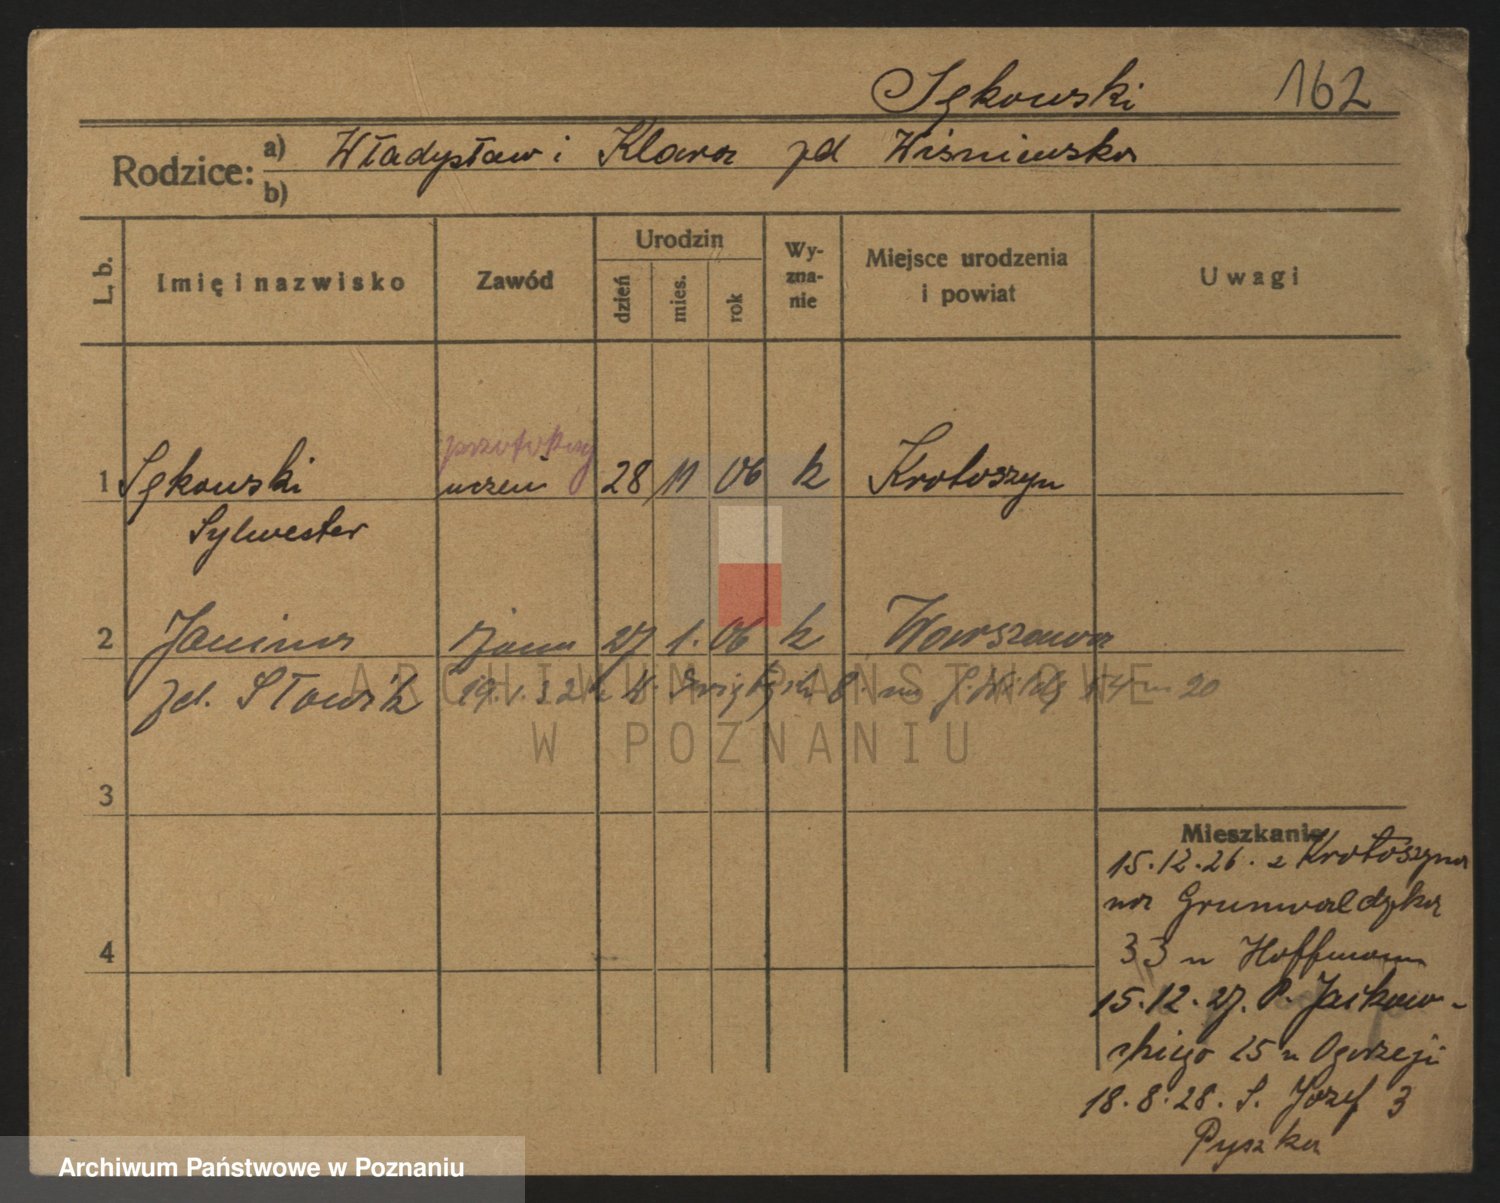 Sękowski 162
Rodzice: a) Władysław i Klara zd Wiśniewska
b)
L. b. Imię i nazwisko Zawód Urodzin dzień mies. rok Wy-zna-nie Miejsce urodzenia i powiat Uwagi
1 Sękowski uczeń 28 11 06 k Krotoszyn
Sylwester
2 Janina żona 27 1. 06 k Warszawa
zd. Słowik 19. 1. 32 20
ARCHIWUM PAŃSTWOWE
W POZNANIU
3
4
Mieszkanie
15.12.26. z Krotoszyna
na Grunwaldzka
33 u Hoffmann
15.12.27. P. Jackow-
skiego 25 u
18.8.28. S. Józef 3
Pyszka
Archiwum Państwowe w Poznaniu